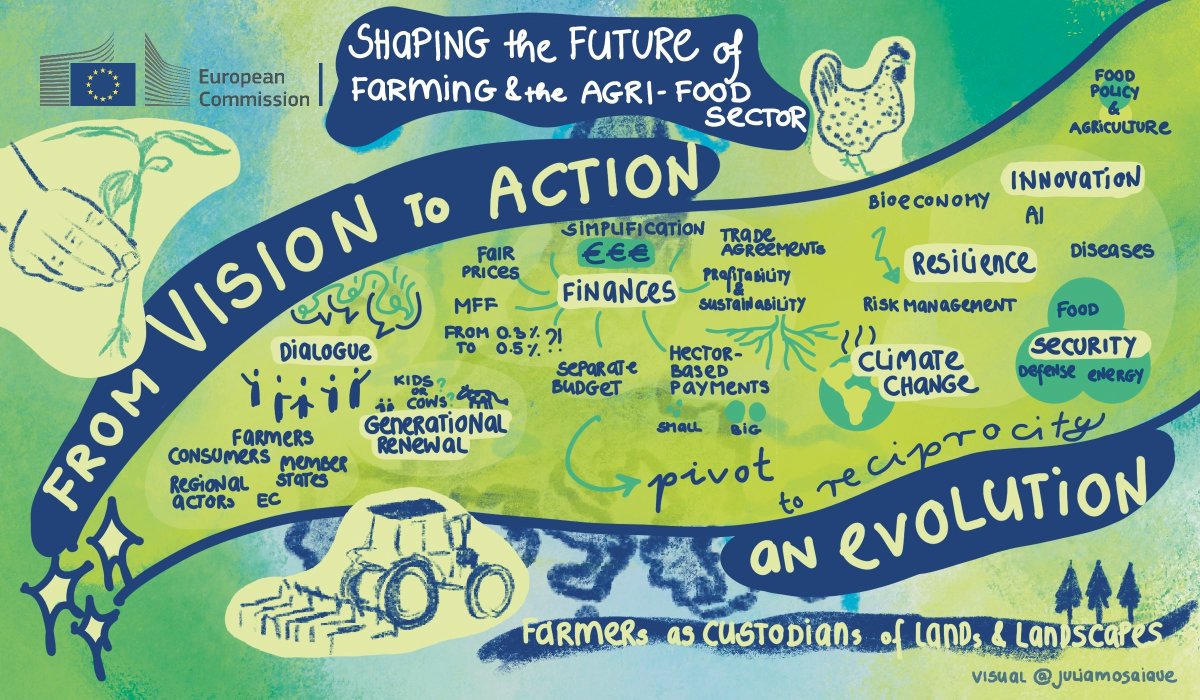 European
Commission
SHAPING the FUTURE of
FARMING & the AGRI-FOOD
SECTOR
FROM VISION TO ACTION
FOOD
POLICY
&
AGRICULTURE
INNOVATION
BIOECONOMY
AI
DISEASES
RESILIENCE
RISK MANAGEMENT
FOOD
SECURITY
DEFENSE ENERGY
SIMPLIFICATION
€€€
FINANCES
FAIR
PRICES
TRADE
AGREEMENTS
PROFITABILITY
&
SUSTAINABILITY
MFF
FROM 0.3%
TO 0.5% ?!
SEPARATE
BUDGET
HECTOR-
BASED
PAYMENTS
SMALL BIG
CLIMATE
CHANGE
DIALOGUE
KIDS
OR
COWS?
GENERATIONAL
RENEWAL
FARMERS
CONSUMERS MEMBER
STATES
REGIONAL
ACTORS EC
pivot
to reciprocity
AN EVOLUTION
FARMERS AS CUSTODIANS of LANDS & LANDSCAPES
VISUAL @JULIAMOSAIQUE